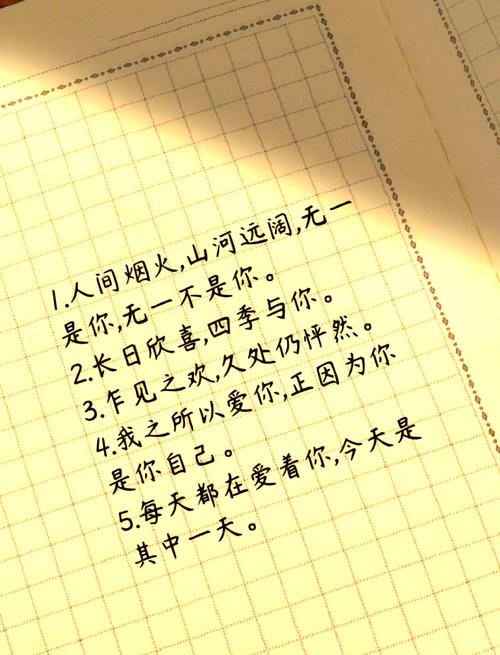 1.人间烟火,山河远阔,无一
是你,无一不是你。
2.长日欣喜,四季与你。
3.乍见之欢,久处仍怦然。
4.我之所以爱你,正因为你
是你自己。
5.每天都在爱着你,今天是
其中一天。